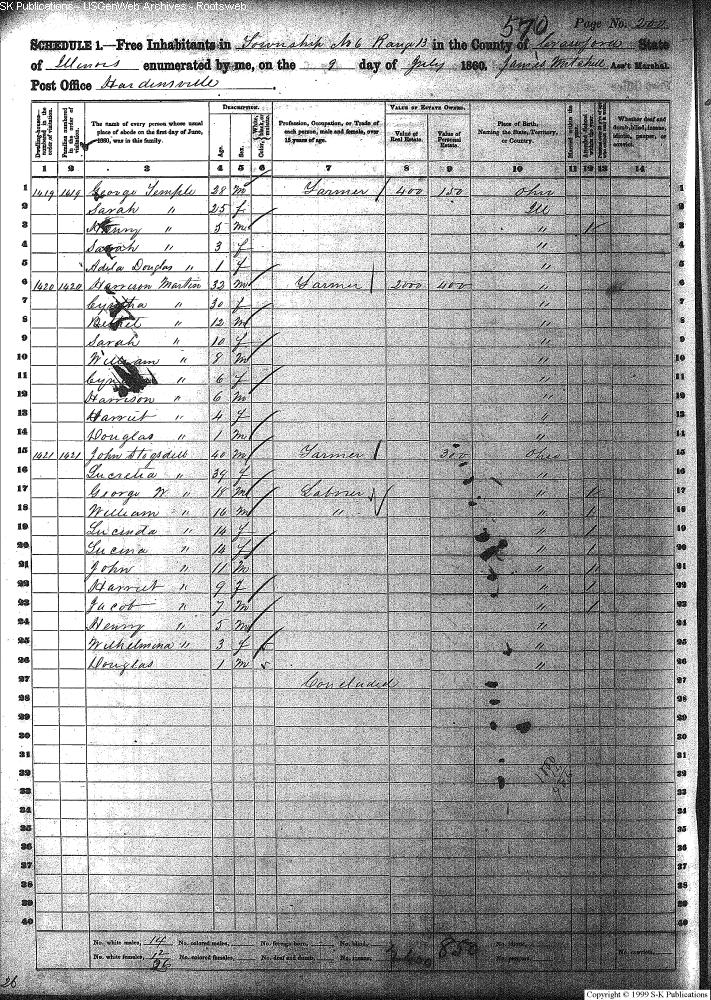 SK Publications - USGenWeb Archives - Rootsweb
570
Page No.
SCHEDULE 1.—Free Inhabitants in Township No 6 Range 13 in the County of Crawford State
of Illinois enumerated by me, on the 9 day of July 1860. James Mitchell Ass't Marshal.
Post Office Hardinsville
Dwelling-houses—numbered in the order of visitation.
Families numbered in the order of visitation.
The name of every person whose usual place of abode on the first day of June, 1860, was in this family.
DESCRIPTION.
Age.
Sex.
Color,
Profession, Occupation, or Trade of each person, male and female, over 15 years of age.
VALUE OF ESTATE OWNED.
Value of Real Estate.
Value of Personal Estate.
Place of Birth, Naming the State, Territory, or Country.
Whether deaf and dumb, blind, insane, idiotic, pauper, or convict.
1 2 3 4 5 6 7 8 9 10 11 12 13 14
1 1419 1419 George Temple 28 m Farmer 400 150 Ohio 1
2 Sarah " 25 f Ill 2
3 Henry " 5 m " 1 3
4 Sarah " 3 f " 4
5 Adela Douglas " 1 f " 5
6 1420 1420 Harrison Martin 33 m Farmer 2000 400 " 6
7 " 30 f " 7
8 " 12 m " 8
9 Sarah " 10 f " 9
10 William " 8 m " 10
11 " 6 f " 11
12 Harrison " 6 m " 12
13 Harriet " 4 f 13
14 Douglas " 1 m " 14
15 1421 1421 John Stogsdill 40 m Farmer 300 Ohio 15
16 Lucretia " 39 f " 16
17 George W " 18 m Laborer " 1 17
18 William " 16 m " " 1 18
19 Lucinda " 14 f " 1 19
20 Lucina " 14 f " 1 20
21 John " 11 m " 1 21
22 Harriet " 9 f " 1 22
23 Jacob " 7 m " 1 23
24 Henry " 5 m " 24
25 Wilhelmina " 3 f " 25
26 Douglas 1 m " 26
27 Concluded 27
28 28
29 29
30 30
31 31
32 32
33 33
34 34
35 35
36 36
37 37
38 38
39 39
40 40
No. white males, 14 No. colored males, No. foreign born, No. blind,
No. white females, 12 No. colored females, No. deaf and dumb, No. insane, 850 No. convicts,
26
26
Copyright © 1999 S-K Publications